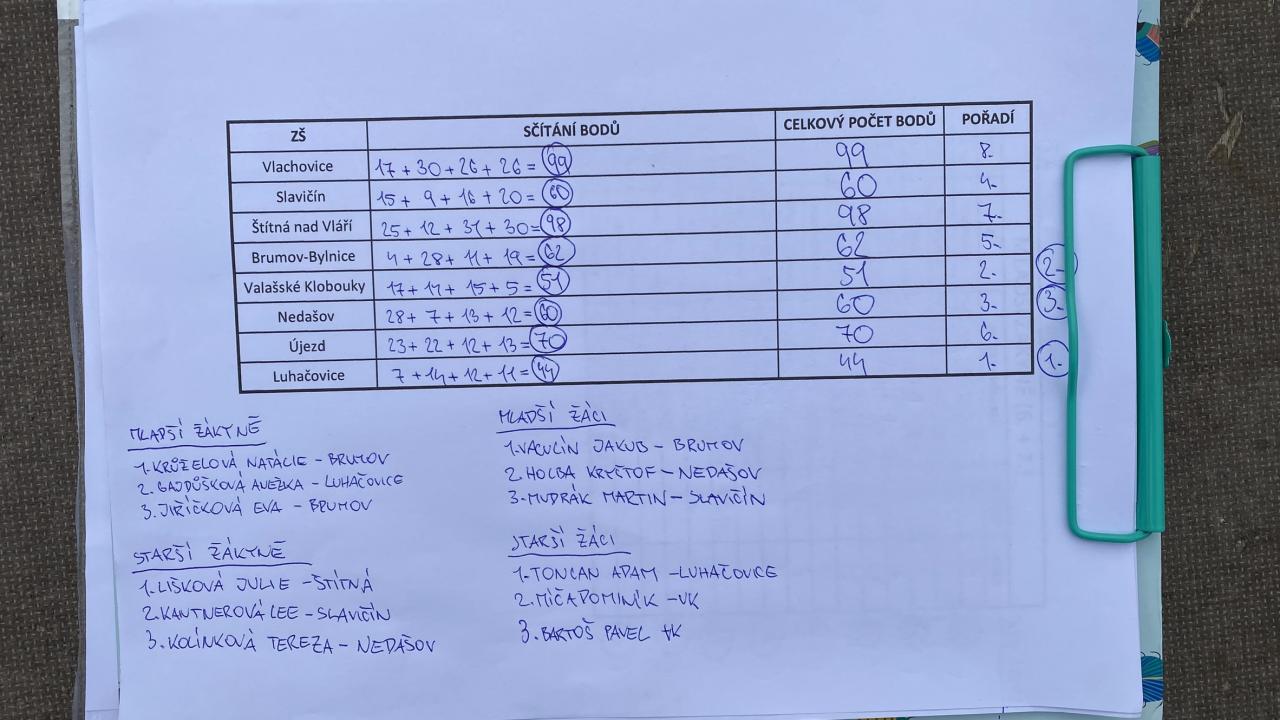 ZŠ SČÍTÁNÍ BODŮ CELKOVÝ POČET BODŮ POŘADÍ
Vlachovice 17 + 30 + 26 + 26 = 99 99 8.
Slavičín 15 + 9 + 16 + 20 = 60 60 4.
Štítná nad Vláří 25 + 12 + 31 + 30 = 98 98 7.
Brumov-Bylnice 4 + 28 + 11 + 19 = 62 62 5.
Valašské Klobouky 17 + 14 + 15 + 5 = 51 51 2. 2.
Nedašov 28 + 7 + 13 + 12 = 60 60 3. 3.
Újezd 23 + 22 + 12 + 13 = 70 70 6.
Luhačovice 7 + 14 + 12 + 11 = 44 44 1. 1.
MLADŠÍ ŽÁKYNĚ
1. KRŮŽELOVÁ NATÁLIE - BRUMOV
2. GAJDŮŠKOVÁ ANEŽKA - LUHAČOVICE
3. JIŘÍČKOVÁ EVA - BRUMOV
MLADŠÍ ŽÁCI
1. VACULÍN JAKUB - BRUMOV
2. HOLBA KRYŠTOF - NEDAŠOV
3. MUDRÁK MARTIN - SLAVIČÍN
STARŠÍ ŽÁKYNĚ
1. LIŠKOVÁ JULIE - ŠTÍTNÁ
2. KANTNEROVÁ LEE - SLAVIČÍN
3. KOLÍNKOVÁ TEREZA - NEDAŠOV
STARŠÍ ŽÁCI
1. TONCAN ADAM - LUHAČOVICE
2. MIČA DOMINIK - VK
3. BARTOŠ PAVEL VK